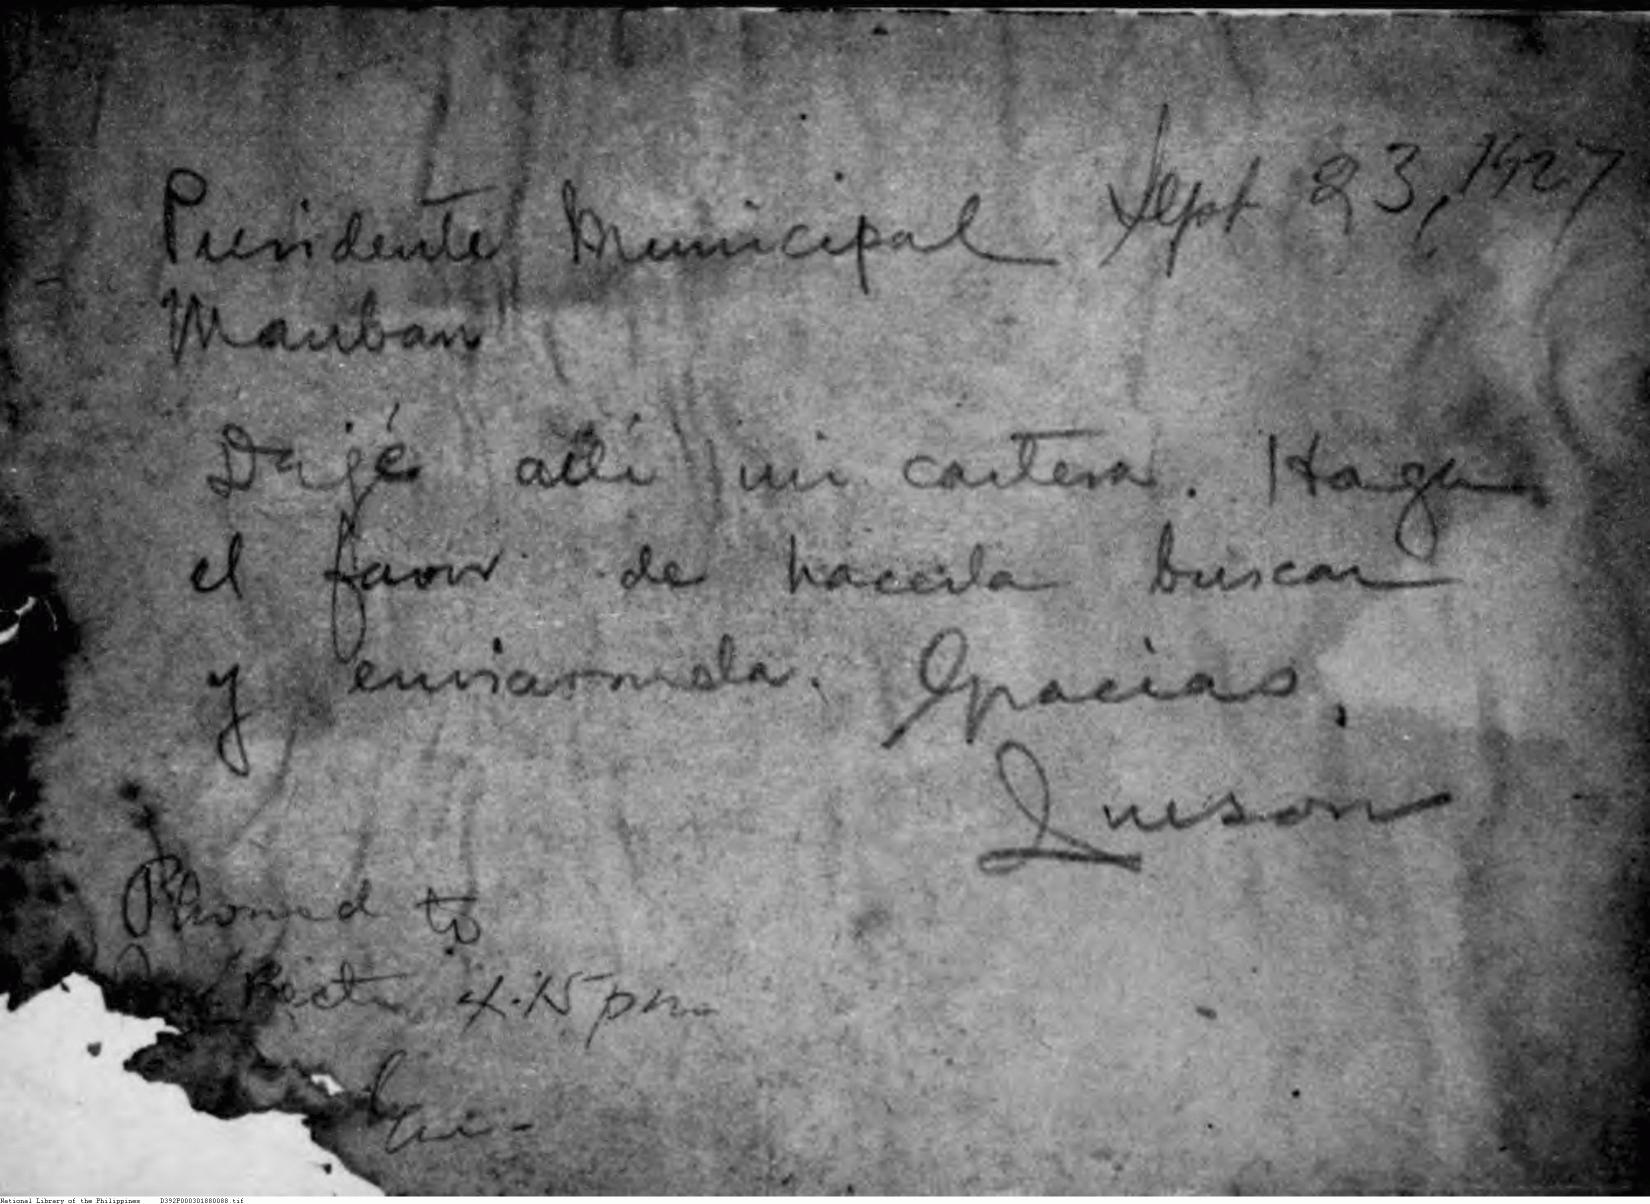 Sept 23, 1927
Presidente Municipal
Mauban
Dejé allí mi cartera. Haga
el favor de hacerla buscar
y enviarmela. Gracias.
Quezon
Phoned to
4.15 pm
National Library of the Philippines D392P000301880088.tif